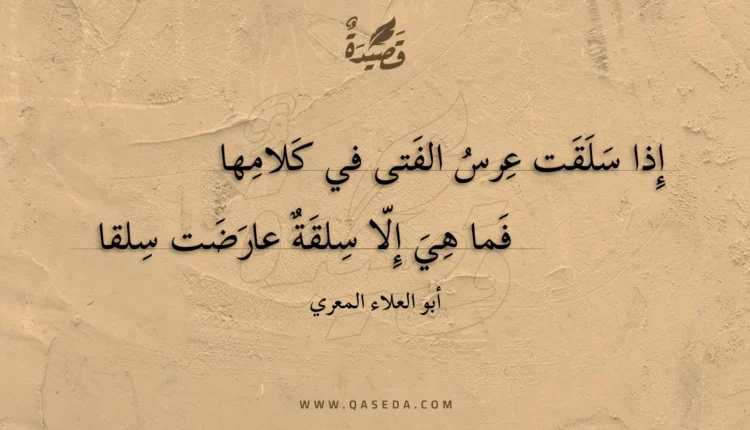 قَصِيدَةٌ
إِذا سَلَقَت عِرسُ الفَتى في كَلامِها
فَما هِيَ إِلّا سِلقَةٌ عارَضَت سِلقا
أبو العلاء المعري
WWW.QASEDA.COM